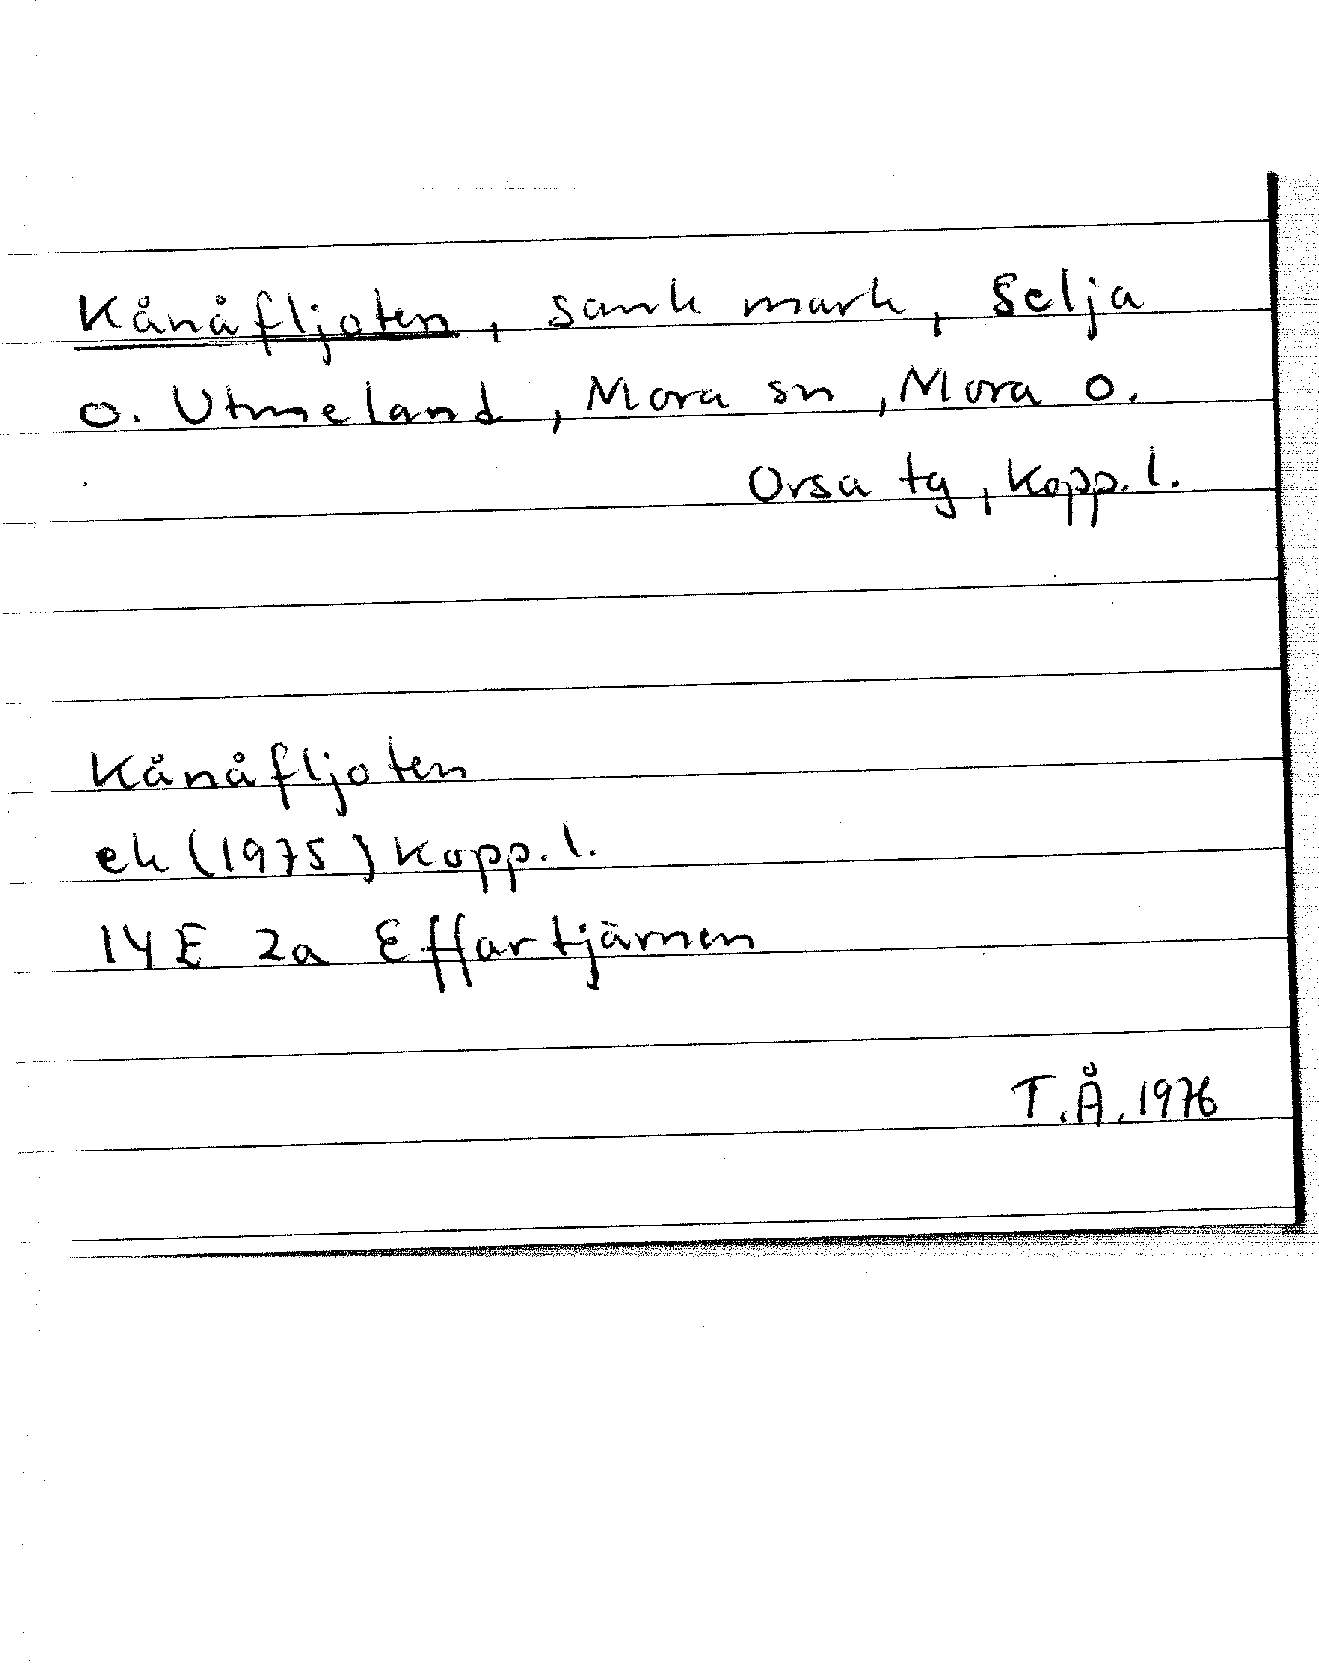 Kånåfljoten, sank mark, Selja
o. Utmeland, Mora sn, Mora o.
Orsa tg, Kopp. l.
Kånåfljoten
ek (1975) Kopp. l.
14 E 2a Effartjärnen
T.Å. 1976